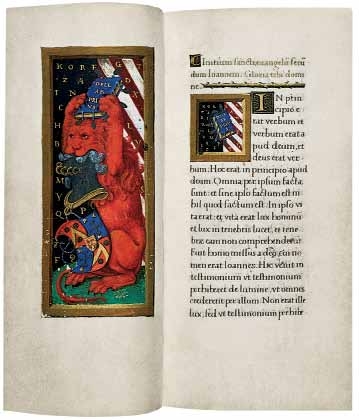 K O R F G
Z A N D X
DELL
AR
PRI
VS
T
C H
B
M
V Q
P
Initium sancti euangelii secun
dum Ioannem. Gloria tibi domi
ne.
IN prin
cipio e
rat verbum et
verbum erat a
pud deum, et
deus erat ver
bum. Hoc erat in principio apud
deum. Omnia per ipsum facta
sunt: et sine ipso factum est ni
hil quod factum est. In ipso vi
ta erat: et vita erat lux hominū
et lux in tenebris lucet, et tene
bre eam non comprehenderūt.
Fuit homo missus a deo cui no
men erat Ioannes. Hic venit in
testimonium vt testimonium
perhiberet de lumine, vt omnes
crederent per illum. Non erat ille
lux, sed vt testimonium perhibe